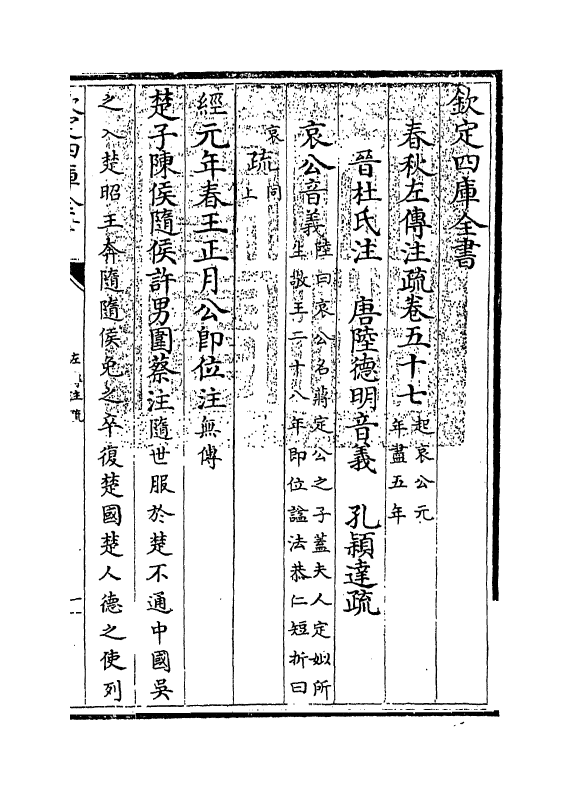 欽定四庫全書
春秋左傳注疏卷五十七起哀公元年盡五年
晉杜氏注 唐陸德明音義 孔穎達疏
哀公音義陸曰哀公名蔣定公之子蓋夫人定姒所生敬王二十八年即位諡法恭仁短折曰
哀疏同上
經元年春王正月公即位注無傳
楚子陳侯隨侯許男圍蔡注隨世服於楚不通中國吳
之入楚昭王奔隨隨侯免之卒復楚國楚人德之使列
欽定四庫全書
左傳注疏
一